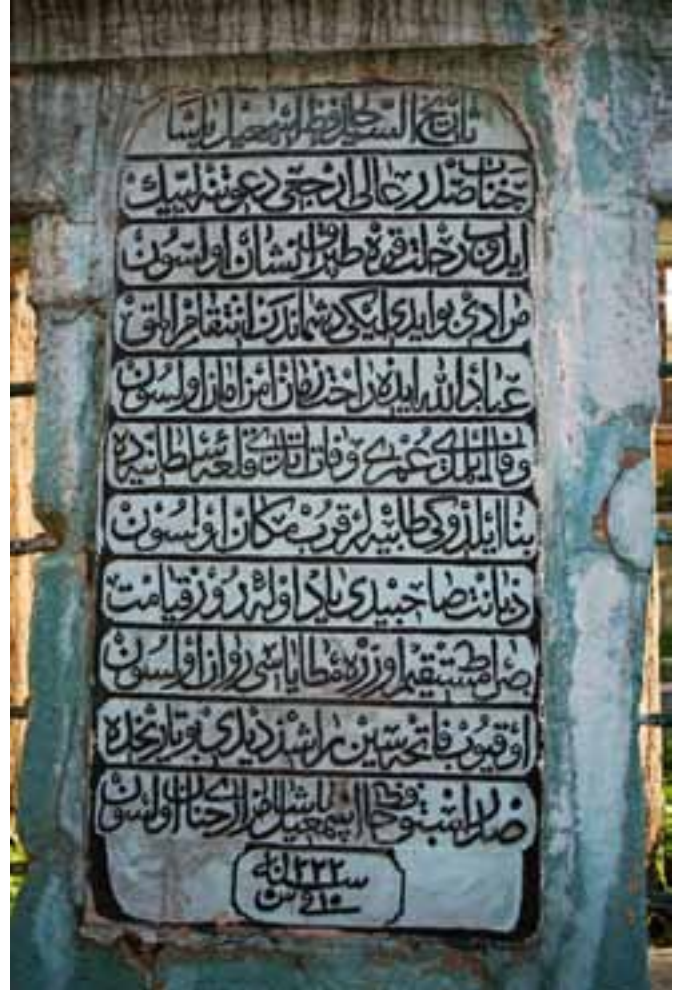 تاريخ السيد حافظ اسمعيل پاشا
جناب صدر عالى ارجعى دعوتنه لبيك
ايدوب رحلت قره طپراق نشان اولسون
مرادى بو ايدى ليكى دشماندن انتقام المق
عباد الله ايده راحت زمان امن امان اولسون
وفا ايلمدى عمرى وفات ايتدى قلعه سلطانيه ده
بنا ايلدوكى طابيه لر قرب مكان اولسون
ديانت صاحبيدى ياد اوله روز قيامت
صراط مستقيم اوزره مطاياسى روان اولسون
اوقيوب فاتحه سين راشد ديدى بو تاريخده
صدر اسبق حافظ اسمعيل پاشا مزارى جنان اولسون
سنه ١٢٢٢